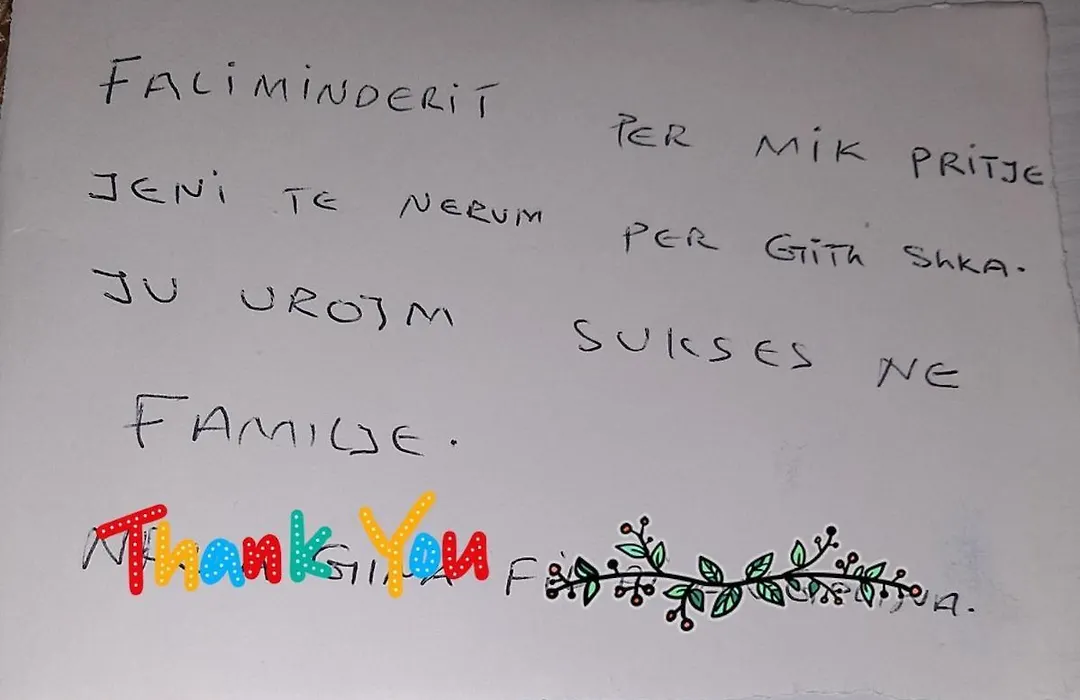 FALiMiNDERiT PER MiK PRiTJE
JENi TE NERUM PER GiTh ShKA.
JU UROJM SUKSES NE
FAMILJE.
Thank You